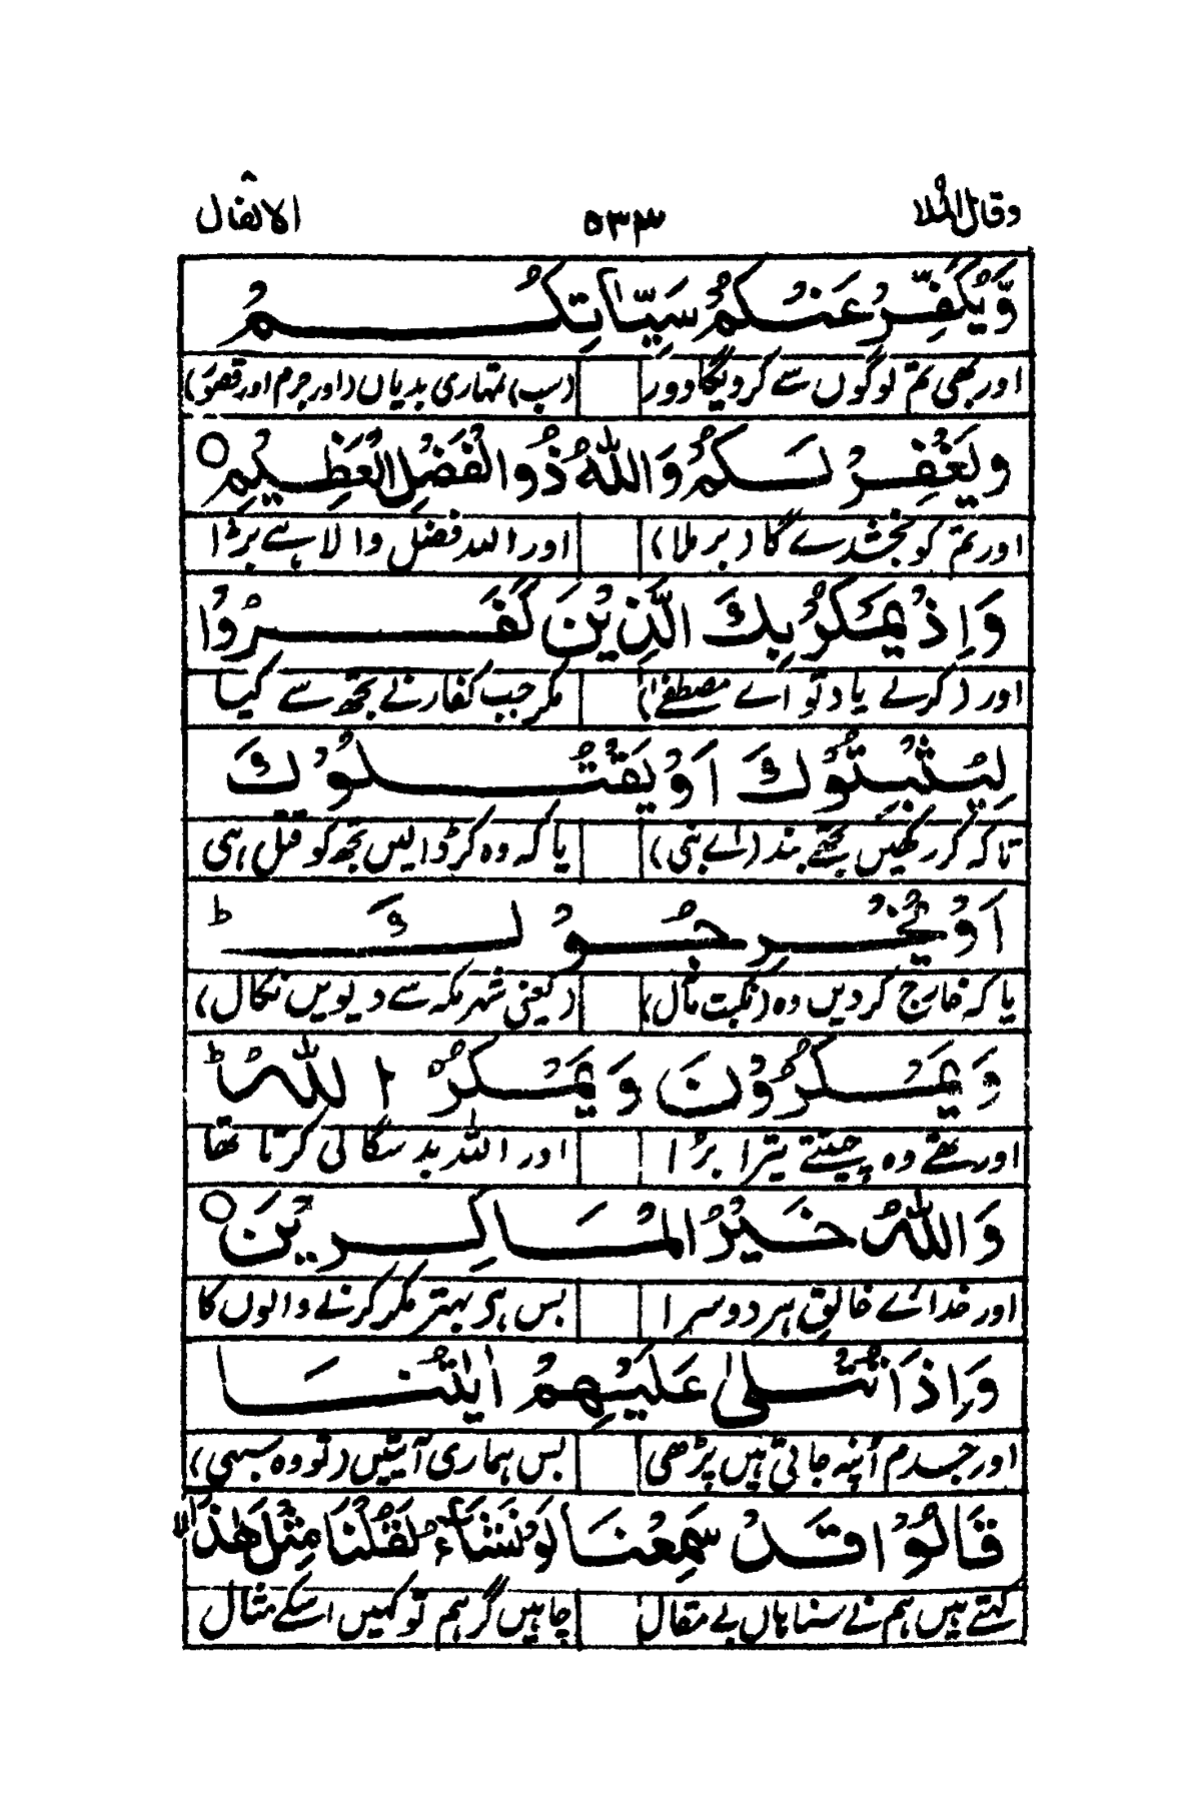 وقال الملا ۵۳۳ الانفال ۸
وَّيُكَفِّرْ عَنْكُمْ سَيِّاٰتِكُمْ
اور بھی تم لوگوں سے کر دیگا دور (سب) تمہاری بدیاں (اور جرم اور قصور)
وَيَغْفِرْ لَكُمْ وَاللّٰهُ ذُو الْفَضْلِ الْعَظِيْمِ ○
اور تم کو بخشدے گا (برملا) اور اللہ فضل والا ہے بڑا
وَاِذْ يَمْكُرُ بِكَ الَّذِيْنَ كَفَرُوْا
اور (کرلے یاد تو اے مصطفےٰ) مکر جب کفار نے تجھ سے کیا
لِيُثْبِتُوْكَ اَوْ يَقْتُلُوْكَ
تاکہ کر رکھیں تجھے بند (اے نبی) یا کہ وہ کر ڈالیں تجھ کو قتل ہی
اَوْ يُخْرِجُوْكَ ؕ
یا کہ خارج کر دیں وہ (نکبت مآل) (یعنی شہر مکہ سے دیویں نکال)
وَيَمْكُرُوْنَ وَيَمْكُرُ اللّٰهُ ؕ
اور تھے وہ چیتتے یترا بڑا اور اللہ بد سگالی کرتا تھا
وَاللّٰهُ خَيْرُ الْمَاكِرِيْنَ ○
اور خدائے خالق ہر دوسرا بس ہے بہتر مکر کرنے والوں کا
وَاِذَا تُتْلٰى عَلَيْهِمْ اٰيٰتُنَا
اور جسدم اُنپہ جاتی ہیں پڑھی بس ہماری آیتیں (تو وہ سبھی)
قَالُوْا قَدْ سَمِعْنَا لَوْ نَشَآءُ لَقُلْنَا مِثْلَ هٰذَا ۙ
کہتے ہیں ہم نے سنا ہاں بے مقال چاہیں گر ہم تو کہیں اسکے مثال